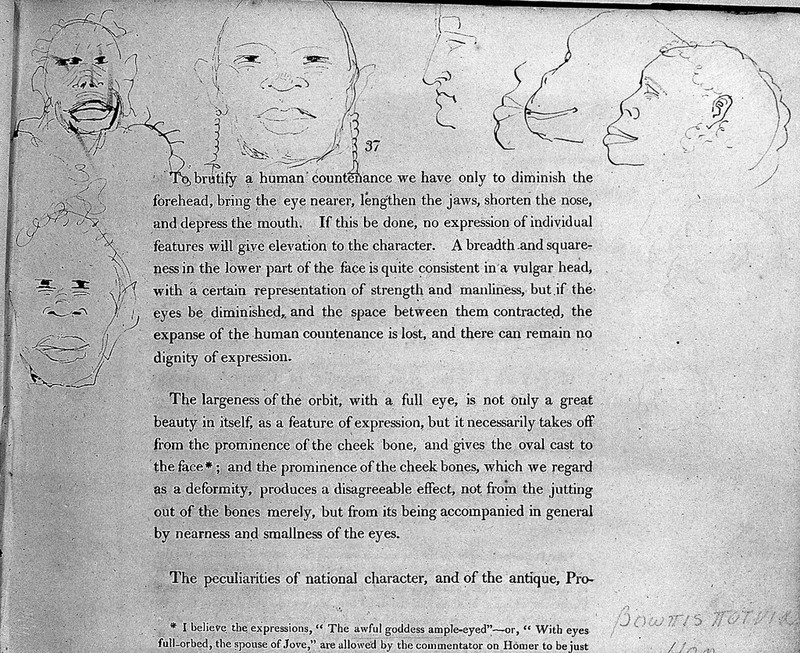 37
To brutify a human countenance we have only to diminish the
forehead, bring the eye nearer, lengthen the jaws, shorten the nose,
and depress the mouth. If this be done, no expression of individual
features will give elevation to the character. A breadth and square-
ness in the lower part of the face is quite consistent in a vulgar head,
with a certain representation of strength and manliness, but if the
eyes be diminished, and the space between them contracted, the
expanse of the human countenance is lost, and there can remain no
dignity of expression.
The largeness of the orbit, with a full eye, is not only a great
beauty in itself, as a feature of expression, but it necessarily takes off
from the prominence of the cheek bone, and gives the oval cast to
the face*; and the prominence of the cheek bones, which we regard
as a deformity, produces a disagreeable effect, not from the jutting
out of the bones merely, but from its being accompanied in general
by nearness and smallness of the eyes.
The peculiarities of national character, and of the antique, Pro-
* I believe the expressions, “ The awful goddess ample-eyed”—or, “ With eyes
full-orbed, the spouse of Jove,” are allowed by the commentator on Homer to be just